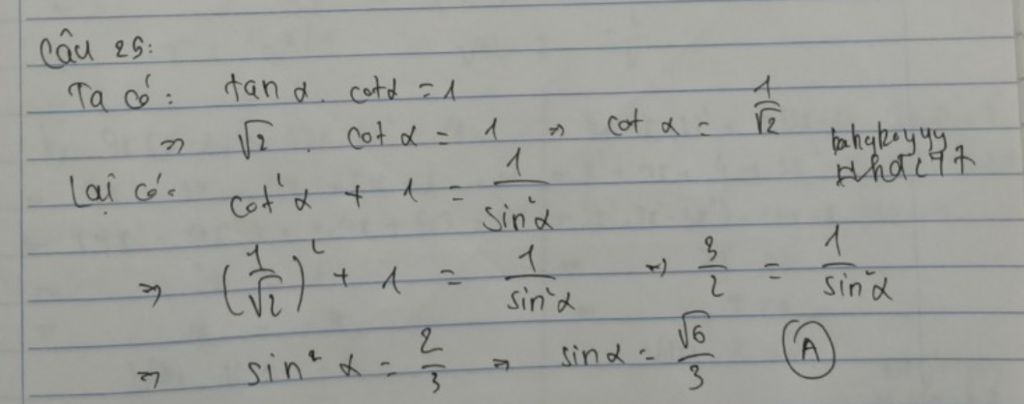 Câu 25:
Ta có: tan α . cot α = 1
⇒ √2 . cot α = 1 ⇒ cot α = 1/√2
Lại có: cot²α + 1 = 1/sin²α
⇒ (1/√2)² + 1 = 1/sin²α ⇒ 3/2 = 1/sin²α
⇒ sin² α = 2/3 ⇒ sin α = √6/3 (A)